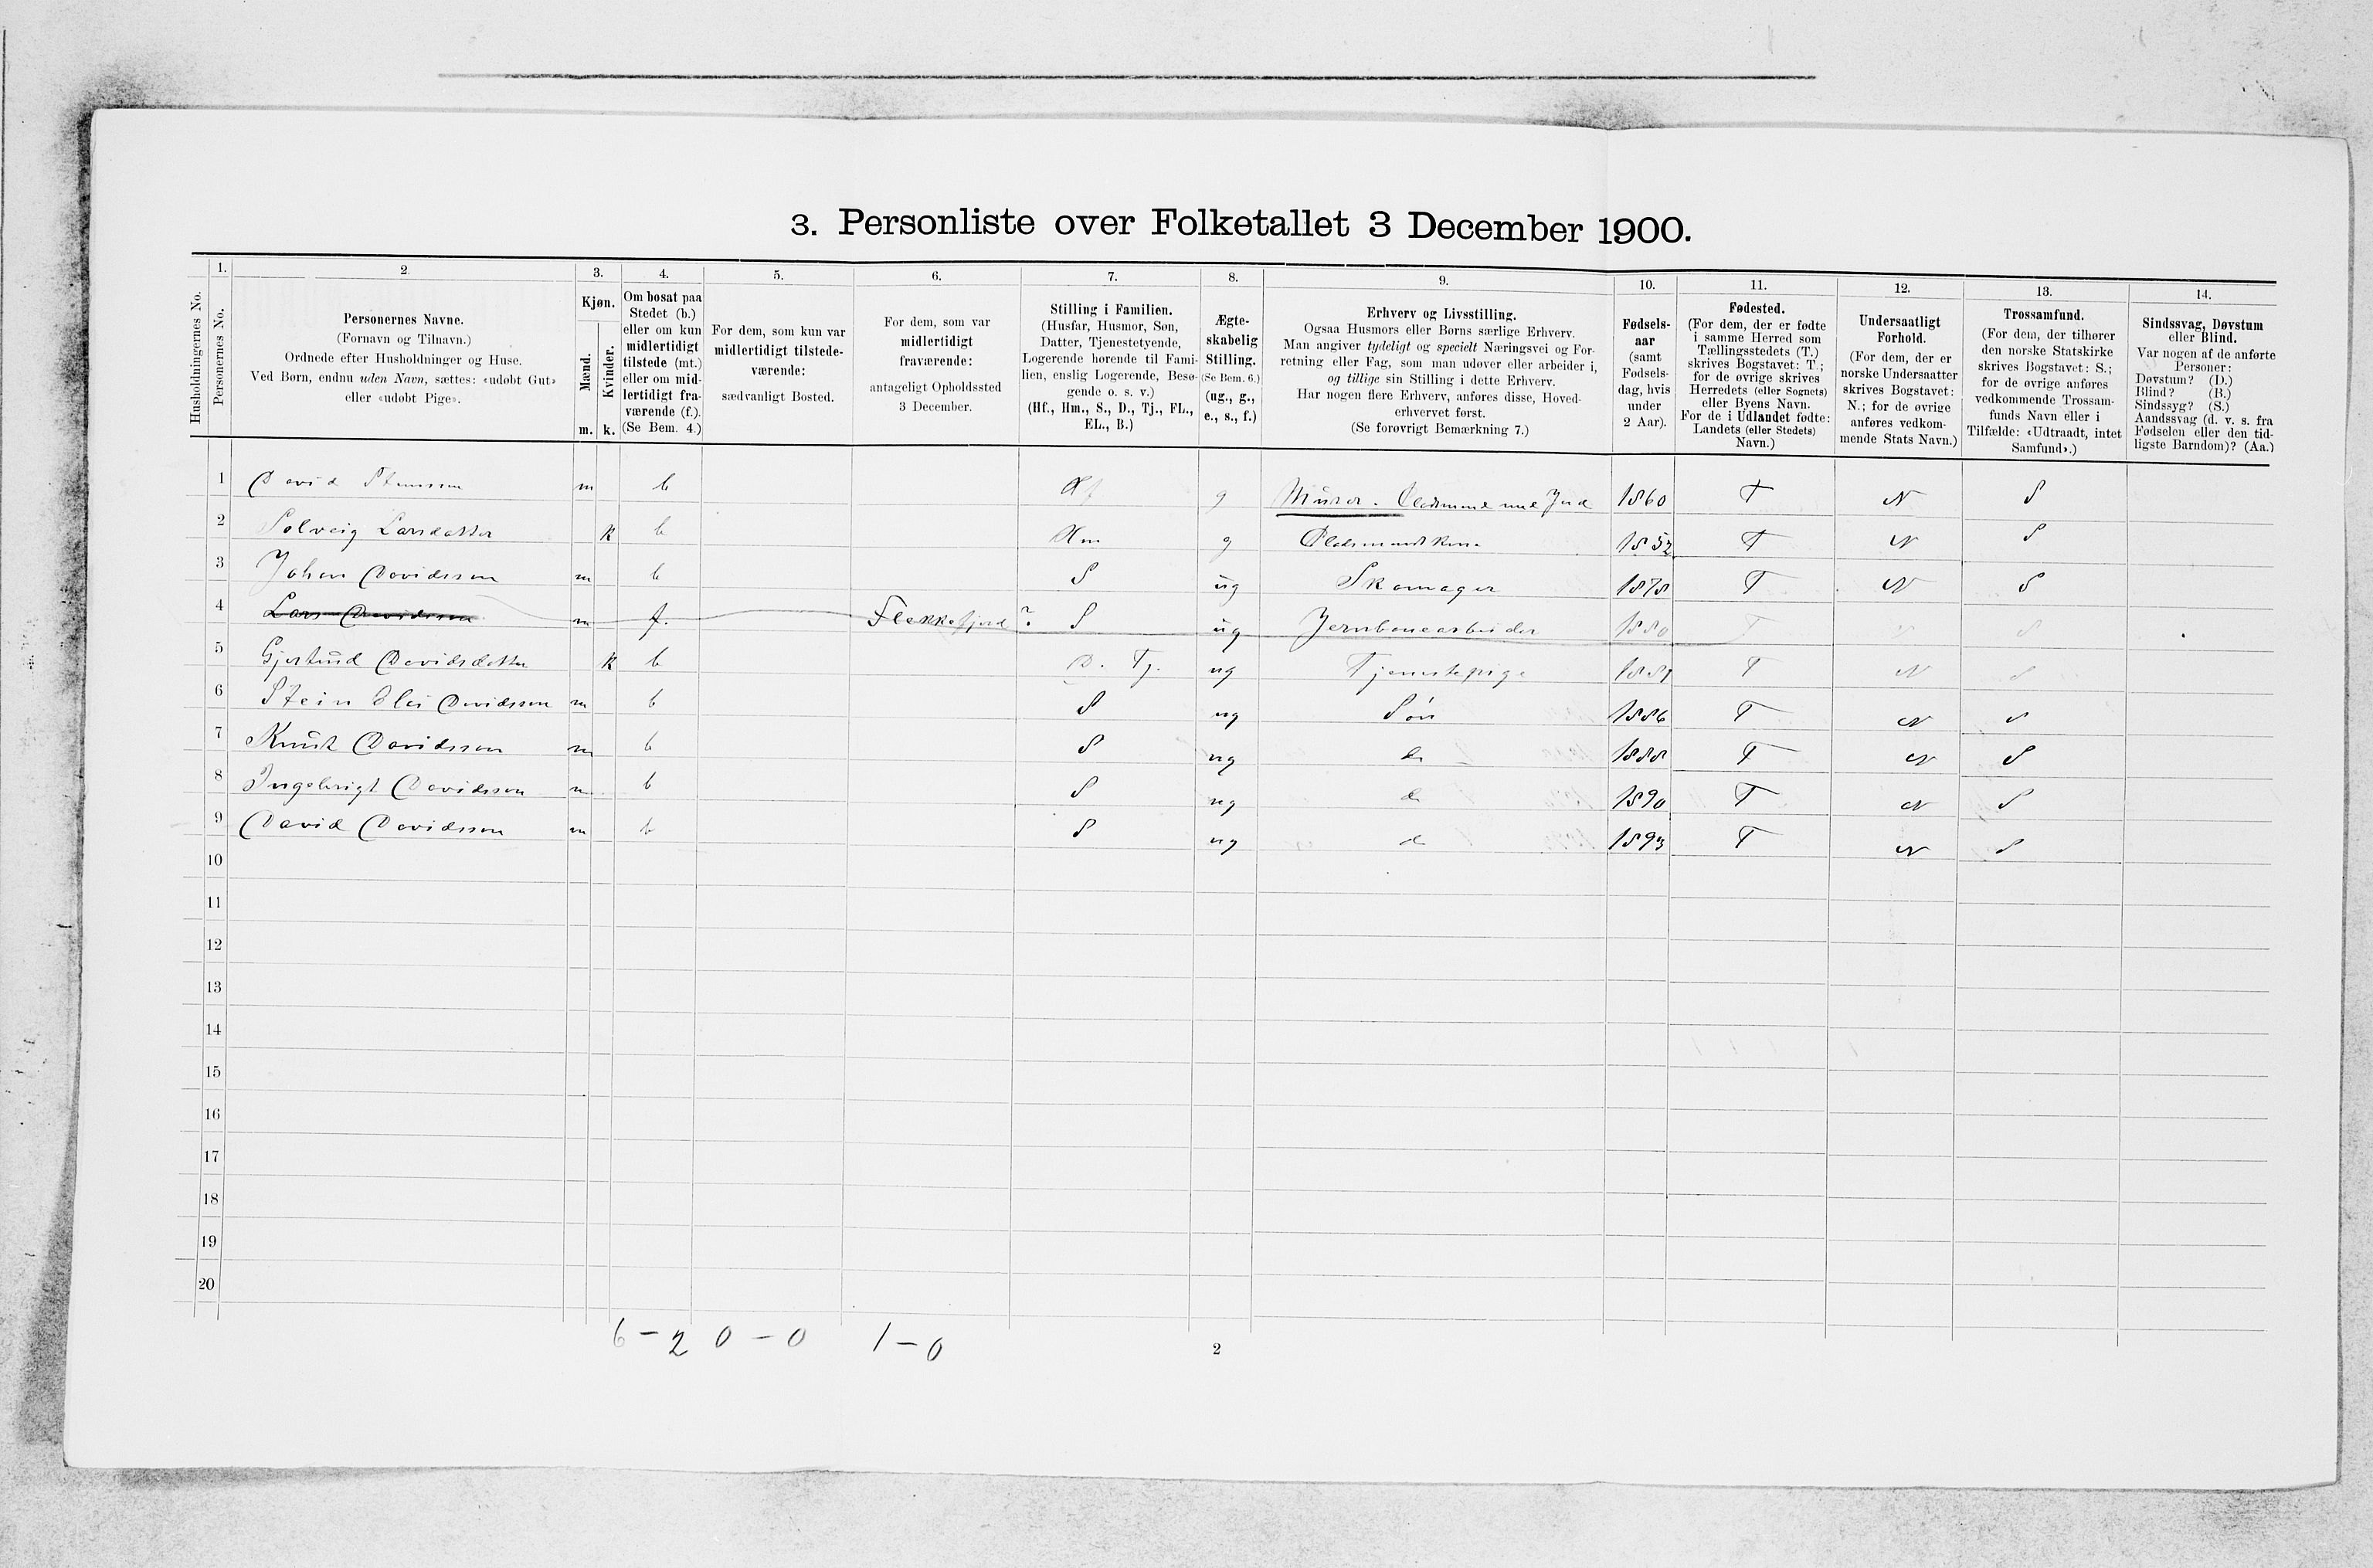 3. Personliste over Folketallet 3 December 1900.
Husholdningernes No.
1.
Personernes No.
2.
Personernes Navne.
(Fornavn og Tilnavn.)
Ordnede efter Husholdninger og Huse.
Ved Børn, endnu uden Navn, sættes: «udøbt Gut»
eller «udøbt Pige».
3.
Kjøn.
Mænd.
Kvinder.
m. k.
4.
Om bosat paa
Stedet (b.)
eller om kun
midlertidigt
tilstede (mt.)
eller om mid-
lertidigt fra-
værende (f.).
(Se Bem. 4.)
5.
For dem, som kun var
midlertidigt tilstede-
værende:
sædvanligt Bosted.
6.
For dem, som var
midlertidigt
fraværende:
antageligt Opholdssted
3 December.
7.
Stilling i Familien.
(Husfar, Husmor, Søn,
Datter, Tjenestetyende,
Logerende hørende til Fami-
lien, enslig Logerende, Besø-
gende o. s. v.)
(Hf., Hm., S., D., Tj., FL.,
EL., B.)
8.
Ægte-
skabelig
Stilling.
(Se Bem. 6.)
(ug., g.,
e., s., f.)
9.
Erhverv og Livsstilling.
Ogsaa Husmors eller Børns særlige Erhverv.
Man angiver tydeligt og specielt Næringsvei og For-
retning eller Fag, som man udøver eller arbeider i,
og tillige sin Stilling i dette Erhverv.
Har nogen flere Erhverv, anføres disse, Hoved-
erhvervet først.
(Se forøvrigt Bemærkning 7.)
10.
Fødsels-
aar
(samt
Fødsels-
dag, hvis
under
2 Aar).
11.
Fødested.
(For dem, der er fødte
i samme Herred som
Tællingsstedets (T.)
skrives Bogstavet: T.;
for de øvrige skrives
Herredets (eller Sognets)
eller Byens Navn.
For de i Udlandet fødte:
Landets (eller Stedets)
Navn.)
12.
Undersaatligt
Forhold.
(For dem, der er
norske Undersaatter
skrives Bogstavet:
N.; for de øvrige
anføres vedkom-
mende Stats Navn.)
13.
Trossamfund.
(For dem, der tilhører
den norske Statskirke
skrives Bogstavet: S.;
for de øvrige anføres
vedkommende Trossam-
funds Navn eller i
Tilfælde: «Udtraadt, intet
Samfund».)
14.
Sindssvag, Døvstum
eller Blind.
Var nogen af de anførte
Personer:
Døvstum? (D.)
Blind? (B.)
Sindssyg? (S.)
Aandssvag (d. v. s. fra
Fødselen eller den tid-
ligste Barndom)? (Aa.)
1 David m b Hf g Murer. med Jord 1860 T N S
2 Solveig Larsdatter k b Hm g 1852 T N S
3 Johan Davidsson m b S ug Skomager 1878 T N S
4 Lars Davidsson m f. Flekkefjord ? S ug Jernbanearbeider 1880 T N S
5 Gjertrud Davidsdatter k b D. Tj. ug Tjenestepige T N S
6 Stein Davidsson m b S ug Søn 1886 T N S
7 Knut Davidsson m b S ug do 1888 T N S
8 Ingebrigt Davidsson m b S ug do 1890 T N S
9 David Davidsson m b S ug do 1893 T N S
10
11
12
13
14
15
16
17
18
19
20
6 - 2 0 - 0 1 - 0
2